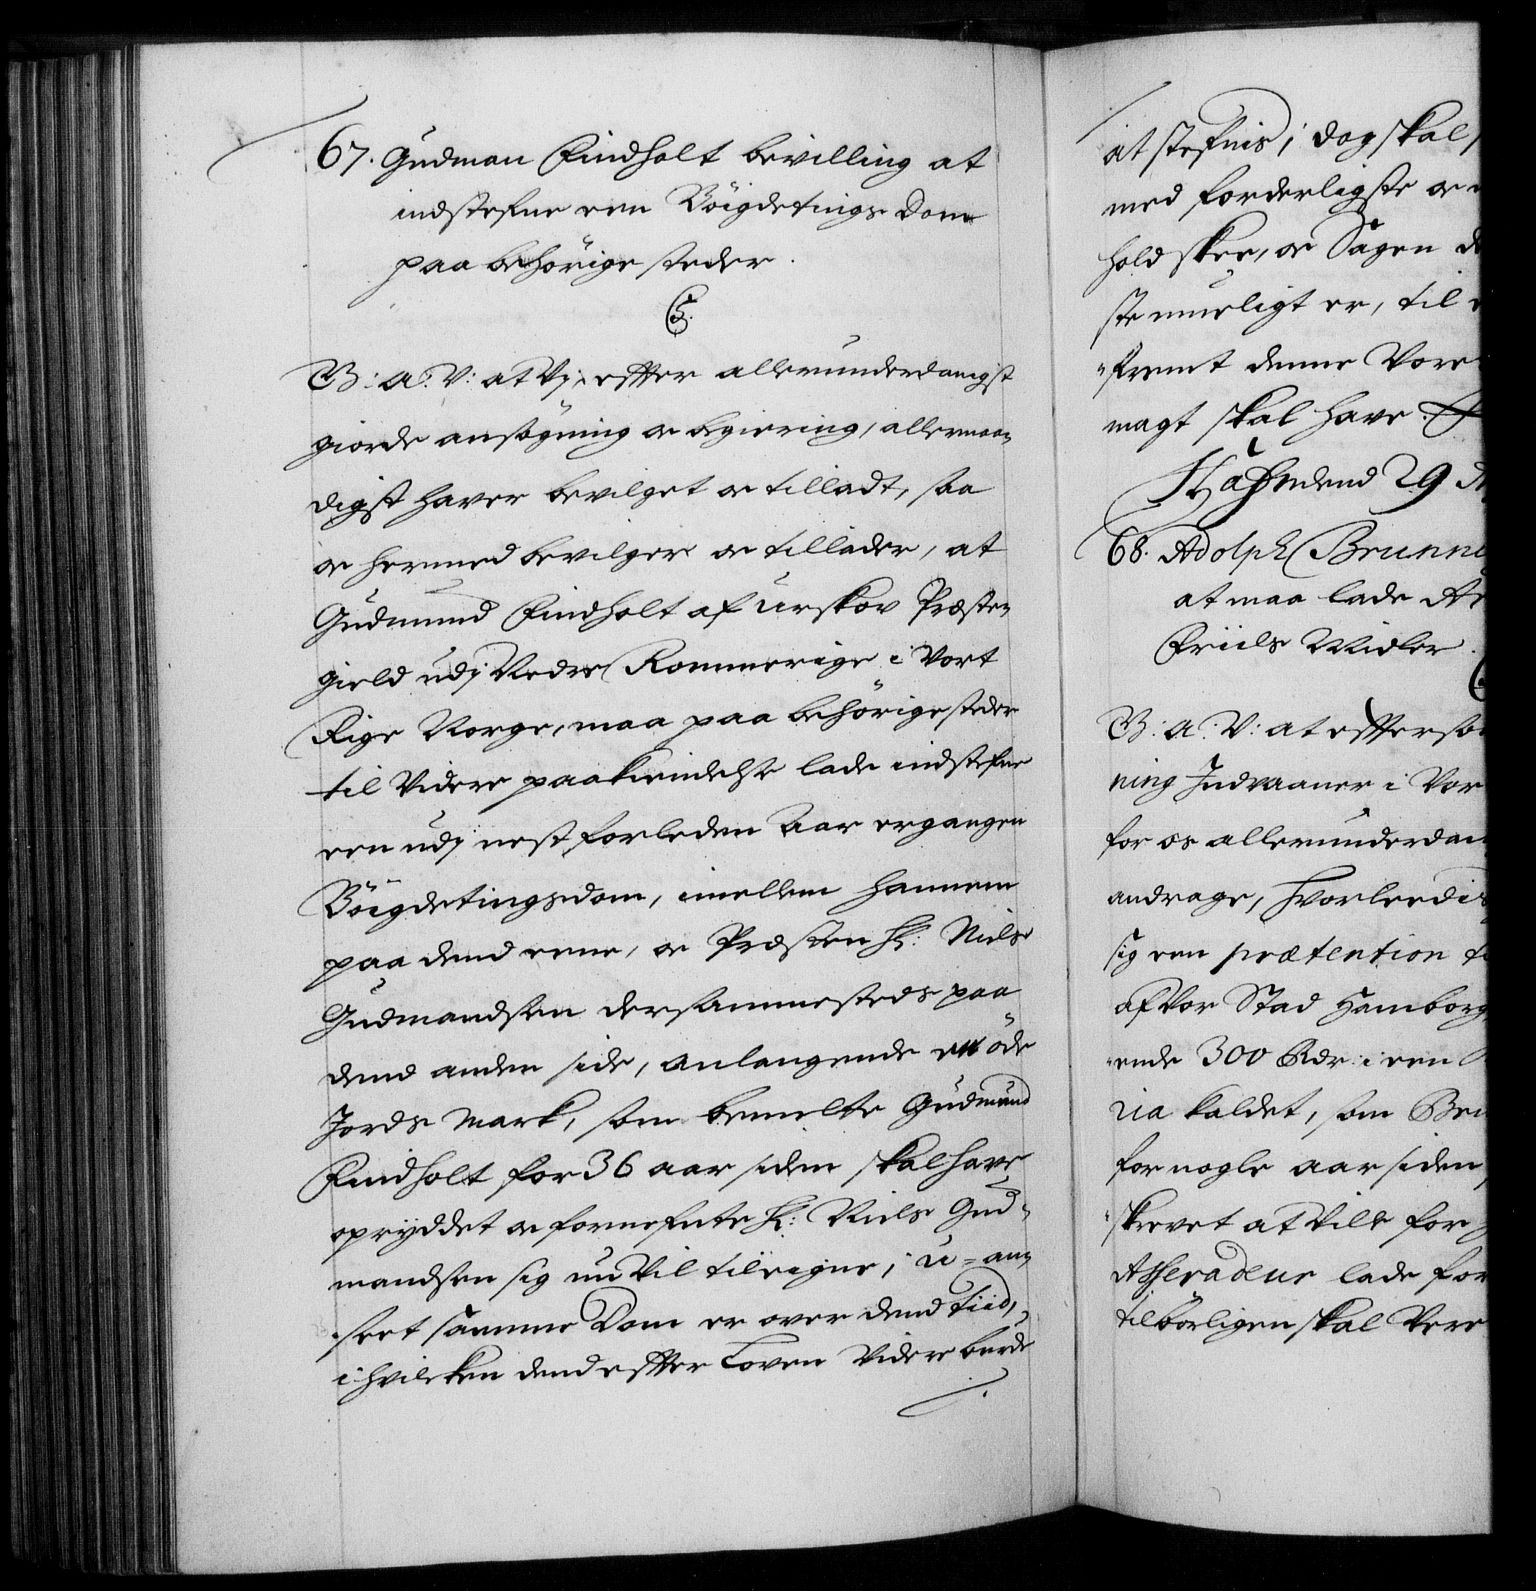 67. Gudman Findholt bevilling at
indstefne een Böigdetings Dom
paa behörige steder.
C5.
G: A: V: at Vj, effter allerunderdanigst
giorde ansögning oc begiering, allernaa-
digst haver bevilget oc tilladt, saa
oc hermed bevilger oc tillader, at
Gudmund Findholt af Urskov Præste-
gield udj Nedre Rommerige i Vort
Rige Norge, maa paa behörige steder
til Videre paakiendelse lade indstefne
een udj nest forleden Aar ergangen
Böigdetingsdom, imellem hannem
paa dend eene, oc Præsten Hr: Niels
Gudmandsen dersammesteds paa
dend anden side, anlangende et öde
Jords Mark, som bemelte Gudmund
Findholt for 36 aar siden skal have
opryddet oc fornefnte Hr: Niels Gud-
mandsen sig nu Vil tileigne, u-an-
seet samme Dom er over dend tiid,
i hvilcken dend effter Loven Videre burde
at stefnis; dog skal
med forderligste oc
hold skee, oc Sagen
ste mueligt er, til
fremt denne Vores
magt skal have.
Hafn dend 29
68. Adolph Brunni
at maa lade
Friils Midler.
G: A: V: at effterso
ning Indvaaner i Vor
for os allerunderdan
andrage, hvorleedis
sig een prætention
af Vor Stad Hamborg
ende 300 Rdr: i een
ria kaldet, som Bru
for nogle aar siden
skrevet at Ville for
Asseradeur lade for
tilbörligen skal Vere